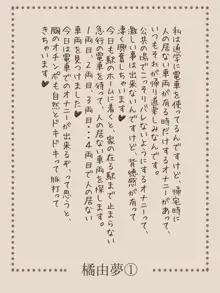 私は通学に電車を使ってるんですけど、帰宅時に
人の居ない車両がある時だけするオナニーがあって、
いつもそれが帰る楽しみなんです。
公共の場でこっそりバレないようにするオナニーって、
激しい事は出来ないんですけど、背徳感が有って
凄く興奮しちゃいます♥
今日も駅のホームに着くと、家の在る駅まで止まらない
急行の電車を待って、人の居ない車両を探します。
1両目、2両目、3両目・・・4両目で人の居ない
車両を見つけました♥
今日は電車でのオナニーが出来るぞって思うと、
胸のオチンポも自然とドキドキって脈打って
きちゃいます♥
橘由夢①